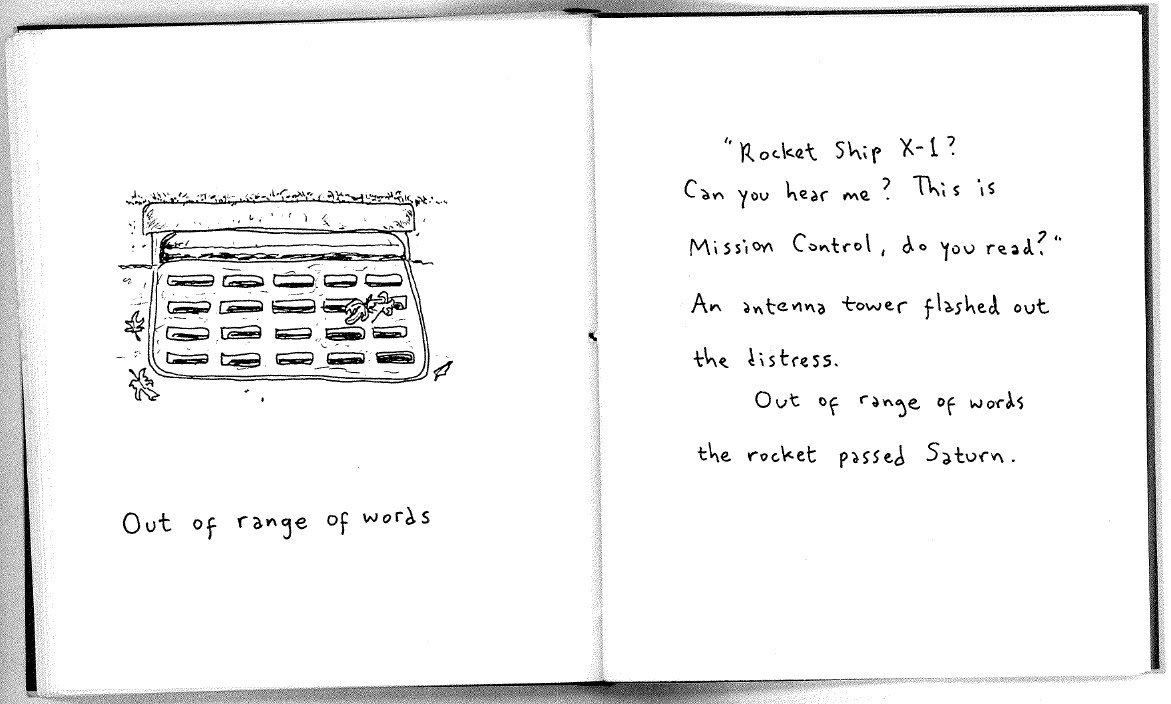 Out of range of words
"Rocket Ship X-1?
Can you hear me? This is
Mission Control, do you read?"
An antenna tower flashed out
the distress.
Out of range of words
the rocket passed Saturn.